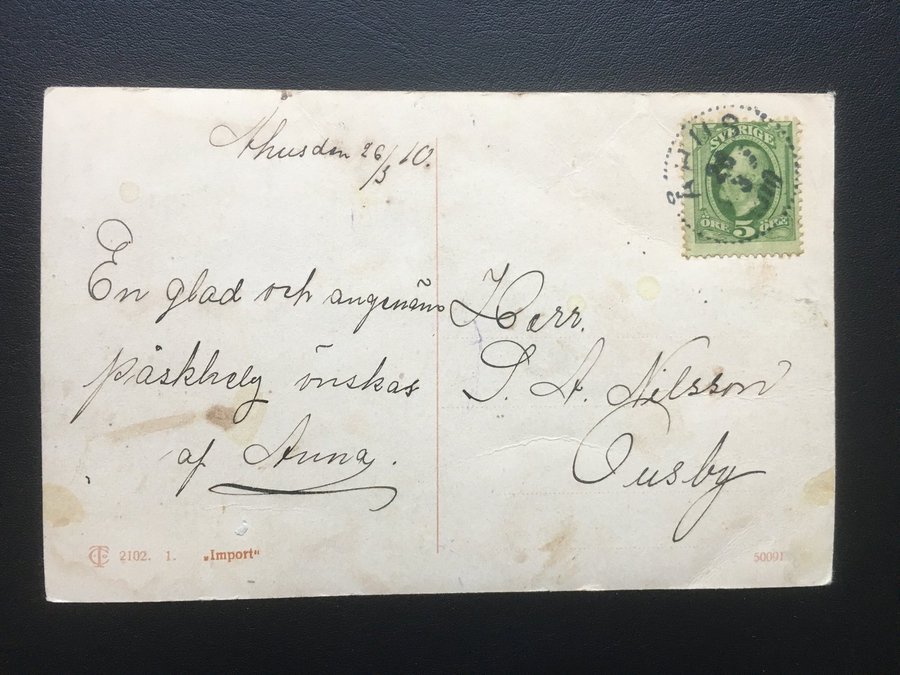 Åhus den 26/3 10.
ÅHUS
26
3
SVERIGE
ÖRE 5 ÖRE
En glad och angenäm
påskhelg önskas
af Anna.
Herr.
S. A. Nilsson
Ousby
2102. 1. „Import“
50091